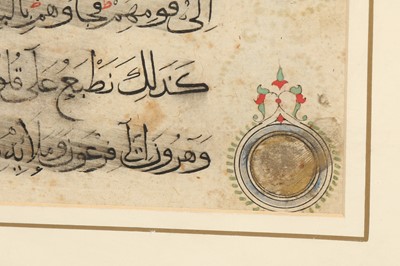 إِلَى قَوْمِهِمْ فَجَاءُوهُمْ بِالْبَ
كَذَلِكَ نَطْبَعُ عَلَى قُلُو
وَهَرُونَ إِلَى فِرْعَوْنَ وَمَلَإِيْهِ